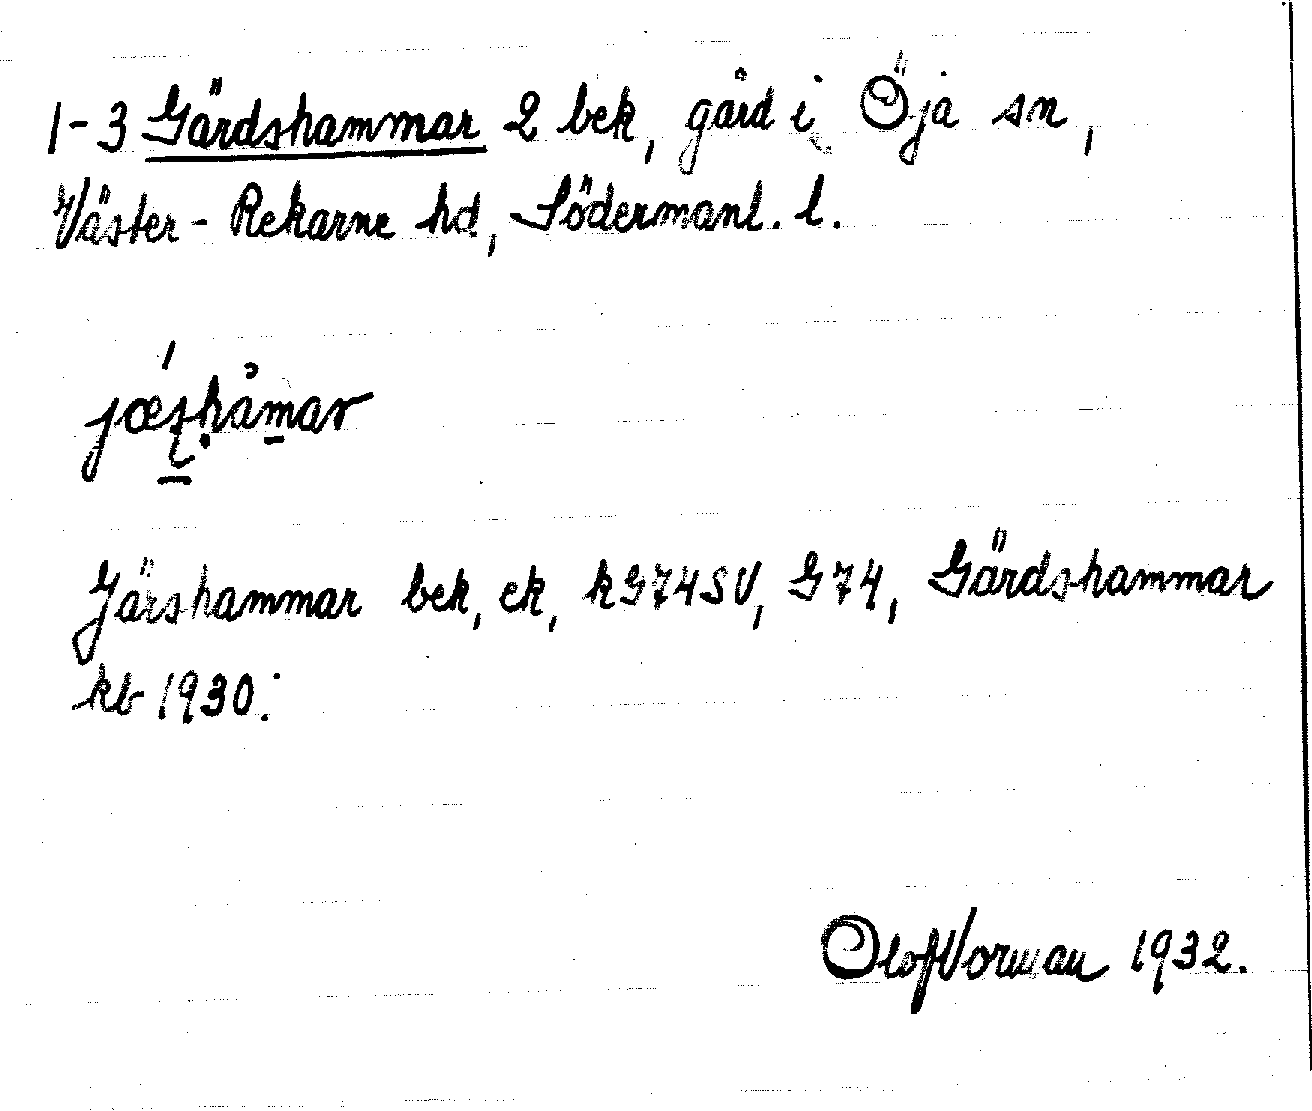 1-3 Gärdshammar 2 bek, gård i Öja sn,
Väster-Rekarne hd, Södermanl. l.
Järshammar bek, ek, kG74SV, G74, Gärdshammar
kb 1930.
Olof Vorman 1932.